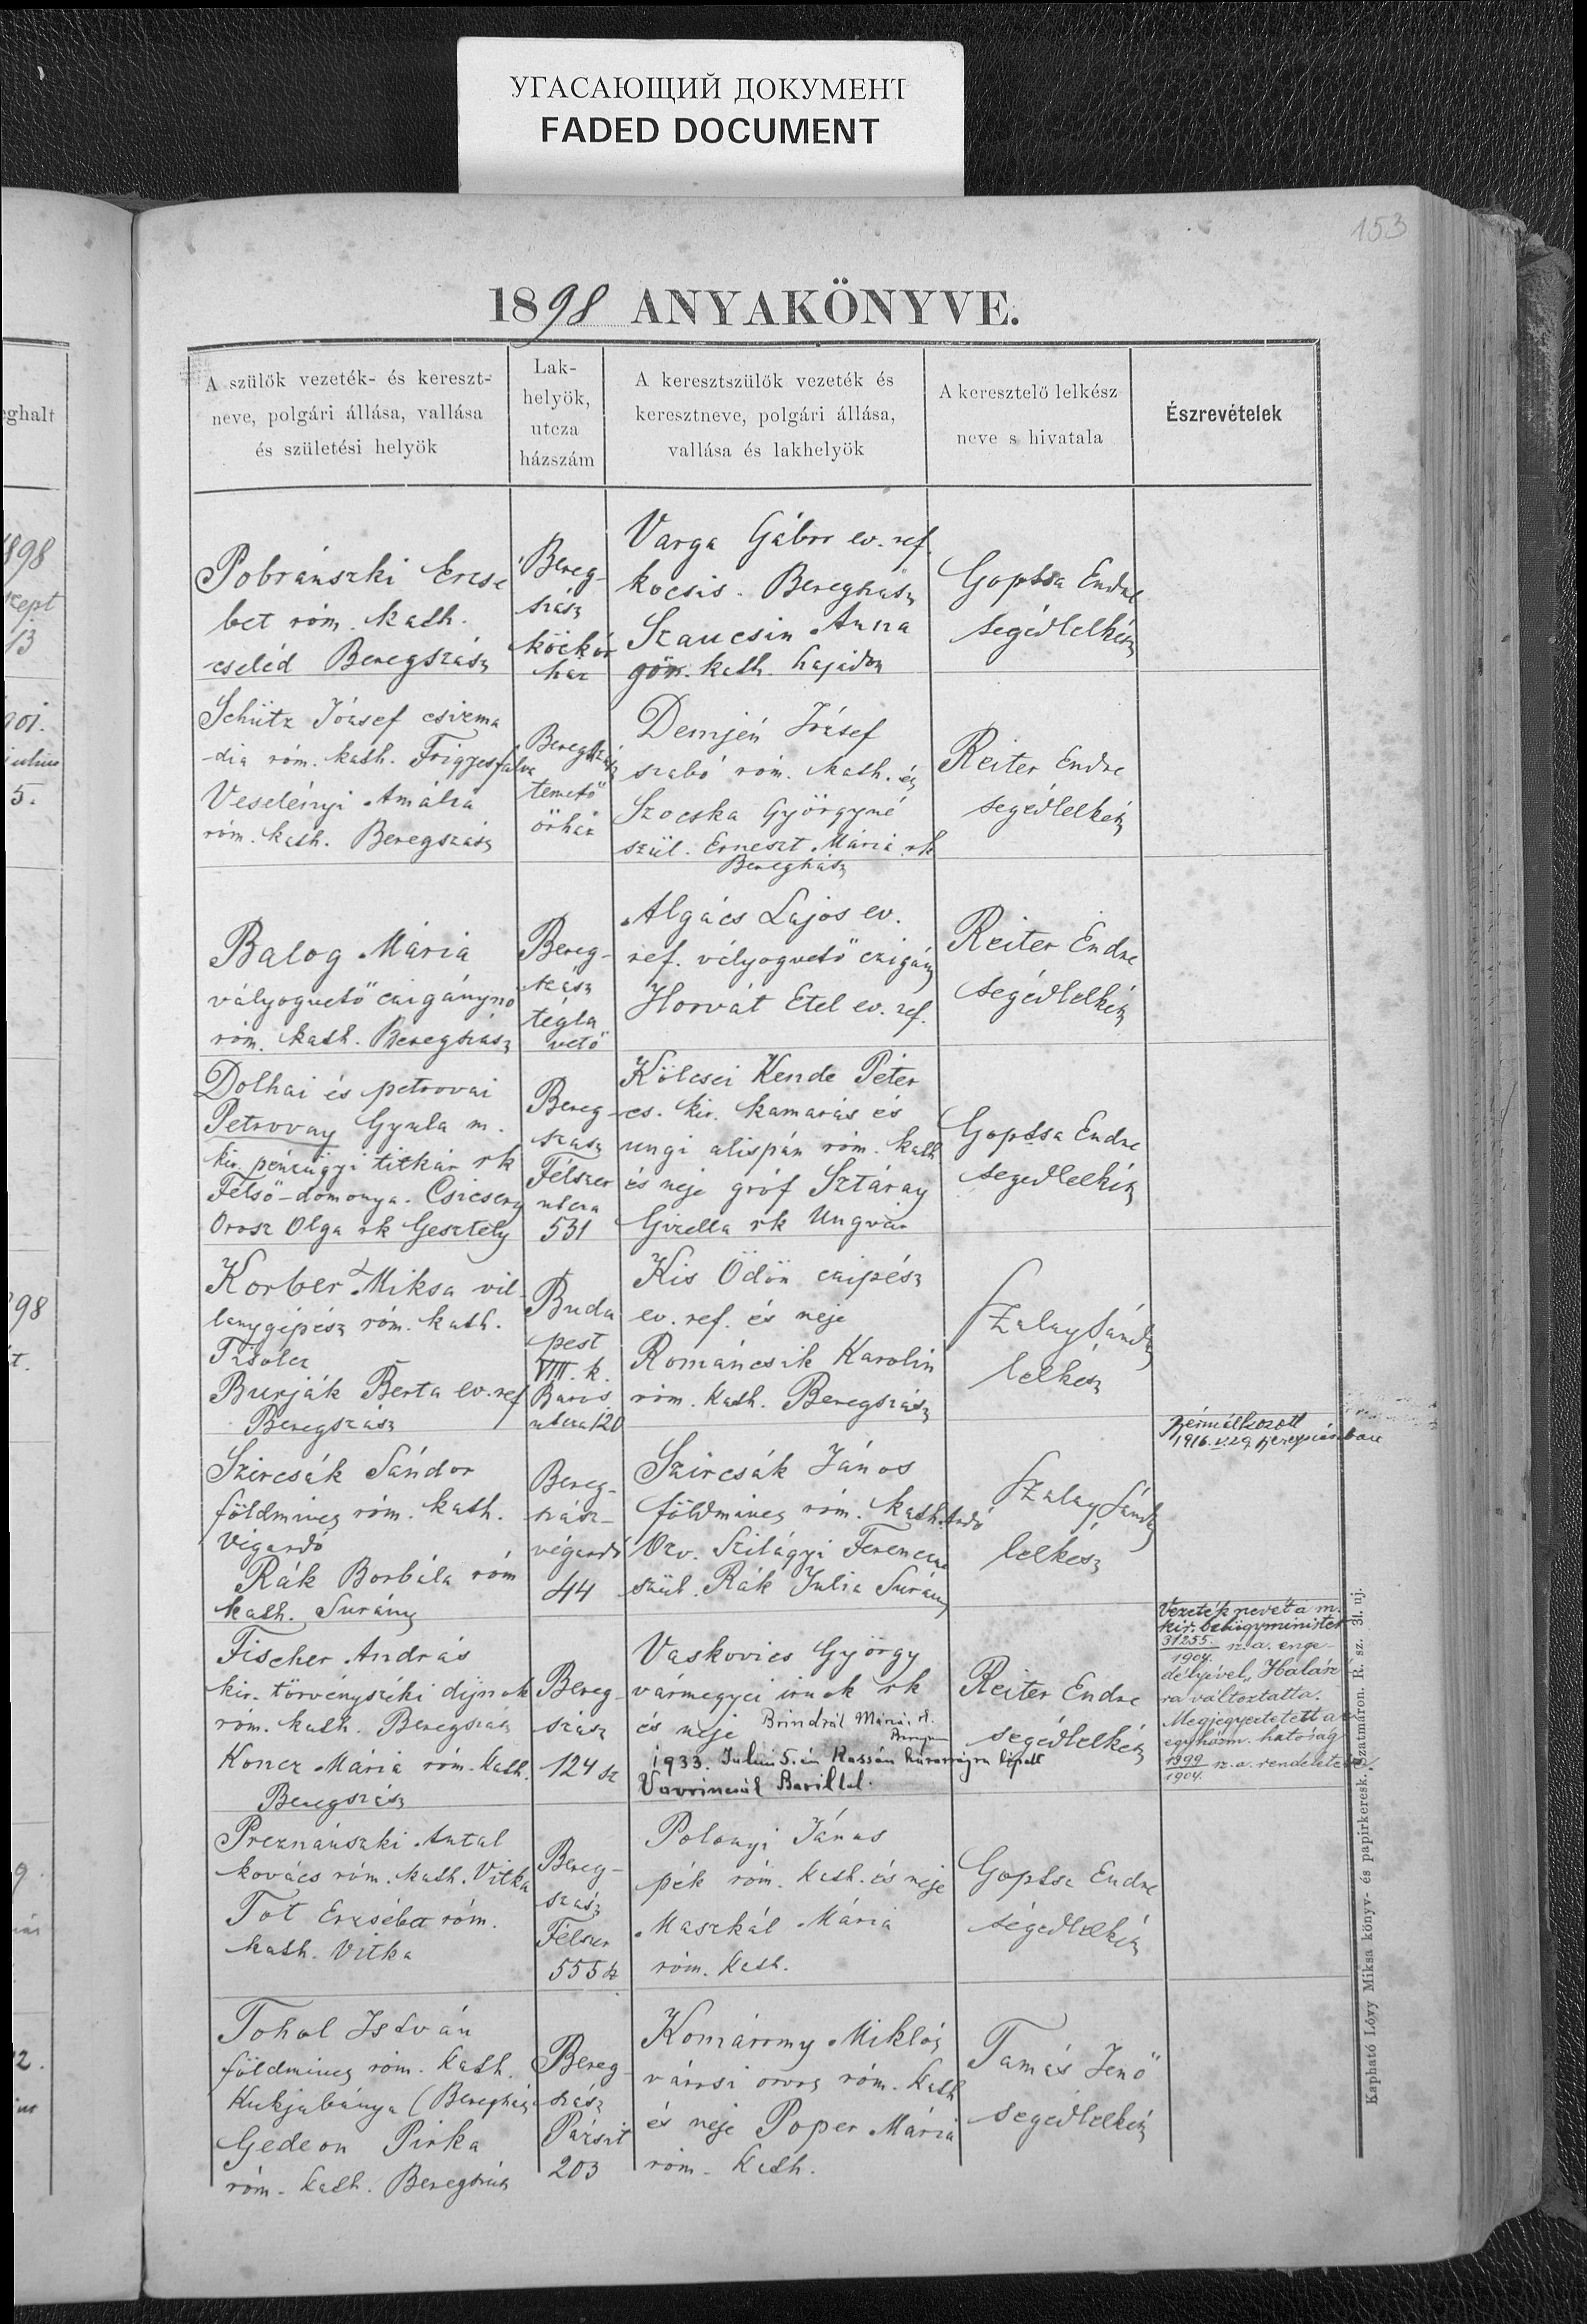 УГАСАЮЩИЙ ДОКУМЕНТ
FADED DOCUMENT
153
1898 ANYAKÖNYVE.
A szülők vezeték- és kereszt-
neve, polgári állása, vallása
és születési helyök
Lak-
helyök,
utcza
házszám
A keresztszülők vezeték és
keresztneve, polgári állása,
vallása és lakhelyök
A keresztelő lelkész
neve s hivatala
Észrevételek
Pobránszki Erzse
bet róm. kath.
cseléd Beregszász
Bereg-
szász
kórház
Varga Gábor ev. ref.
kocsis. Beregszász
Szaucsin Anna
gör. kath. hajadon
Gopcsa Endre
segédlelkész
Schütz József csizma
dia róm. kath. Frigyesfalva
Veselényi Amália
róm. kath. Beregszász
Beregszász
temető
őrház
Demjén József
szabó róm. kath. és
Szocska Györgyné
szül. Erneszt Mária rk
Beregszász
Reiter Endre
segédlelkész
Balog Mária
vályogvető czigánynő
róm. kath. Beregszász
Bereg-
szász
tégla
vető
Algács Lajos ev.
ref. vályogvető czigány
Horvát Etel ev. ref.
Reiter Endre
segédlelkész
Dolhai és petrovai
Petrovay Gyula m.
kir. pénzügyi titkár rk
Felső-domonya. Csicsery
Orosz Olga rk Gesztely
Bereg-
szász
Félszer
utcza
531
Kölcsei Kende Péter
cs. kir. kamarás és
ungi alispán róm. kath
és neje gróf Sztáray
Gizella rk Ungvár
Gopcsa Endre
segédlelkész
Korber Miksa vil-
lanygépész róm. kath.
Burják Berta ev. ref
Beregszász
Buda
pest
VIII. k.
Baros
utcza 120
Kis Ödön czipész
ev. ref. és neje
Románcsik Karolin
róm. kath. Beregszász
Szalay Sándor
lelkész
Bérmálkozott
1916. V. 29
Szircsák Sándor
földmíves róm. kath.
Végardó
Rák Borbála róm
kath. Surány
Bereg-
szász-
végardó
44
Szircsák János
földmíves róm. kath. Ardó
Özv. Szilágyi Ferenczné
szül. Rák Julia Surány
Szalay Sándor
lelkész
Fischer András
kir. törvényszéki dijnok
róm. kath. Beregszász
Koncz Mária róm. kath.
Beregszász
Bereg-
szász
124 sz
Vaskovics György
vármegyei irnok rk
és neje
1933. Julius 5.én Kassán házasságra lépett
Reiter Endre
segédlelkész
Vezeték nevét a m.
kir. belügyminister
31255
1904. sz. a. enge-
délyével „Halász"
ra változtatta.
Megjegyeztetett az
egyházm. hatóság
1999
1904. sz. a. rendeletére
Preznánszki Antal
kovács róm. kath. Vitka
Tót Erzsébet róm.
kath. Vitka
Bereg-
szász
Félszer
555 sz
Polonyi János
pék róm. kath. és neje
Maszkál Mária
róm. kath.
Gopcsa Endre
segédlelkész
Tohol István
földmíves róm. kath.
Kukjabánya (Beregszász
Gedeon Pirka
róm. kath. Beregszász
Bereg-
szász
Pázsit
203
Komáromy Miklós
városi orvos róm. kath
és neje Poper Mária
róm. kath.
Tamás Jenő
segédlelkész
Kapható Lóvy Miksa könyv- és papirkeresk. Szatmáron. R. sz. 31. uj.